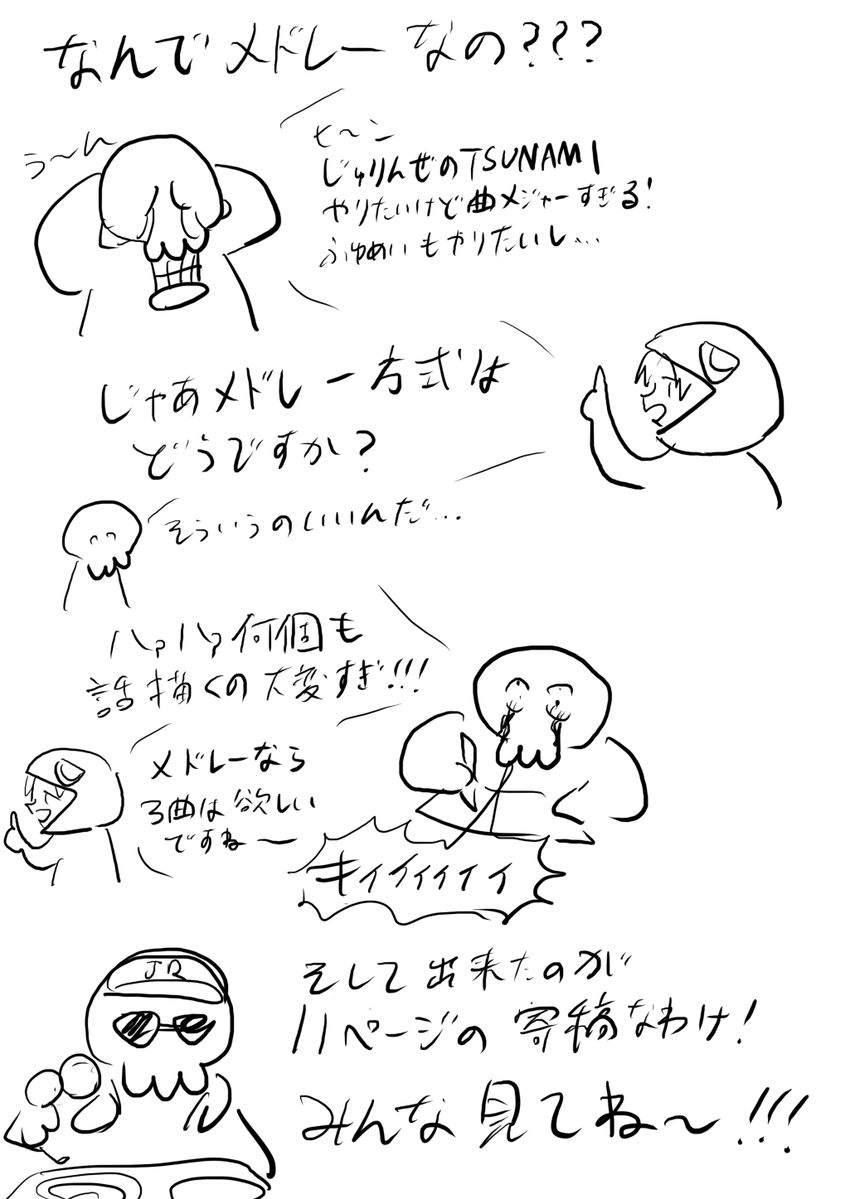 なんでメドレーなの???
う〜ん
ヒ〜ン
じゅりんぜのTSUNAMI
やりたいけど曲メジャーすぎる!
ふゆめいもやりたいし…
じゃあメドレー方式は
どうですか?
そういうのいいんだ…
ハァハァ何個も
話描くの大変すぎ!!!
メドレーなら
3曲は欲しい
ですね〜
キィィィィィィ
JR
そして出来たのが
11ページの寄稿なわけ!
みんな見てね〜!!!